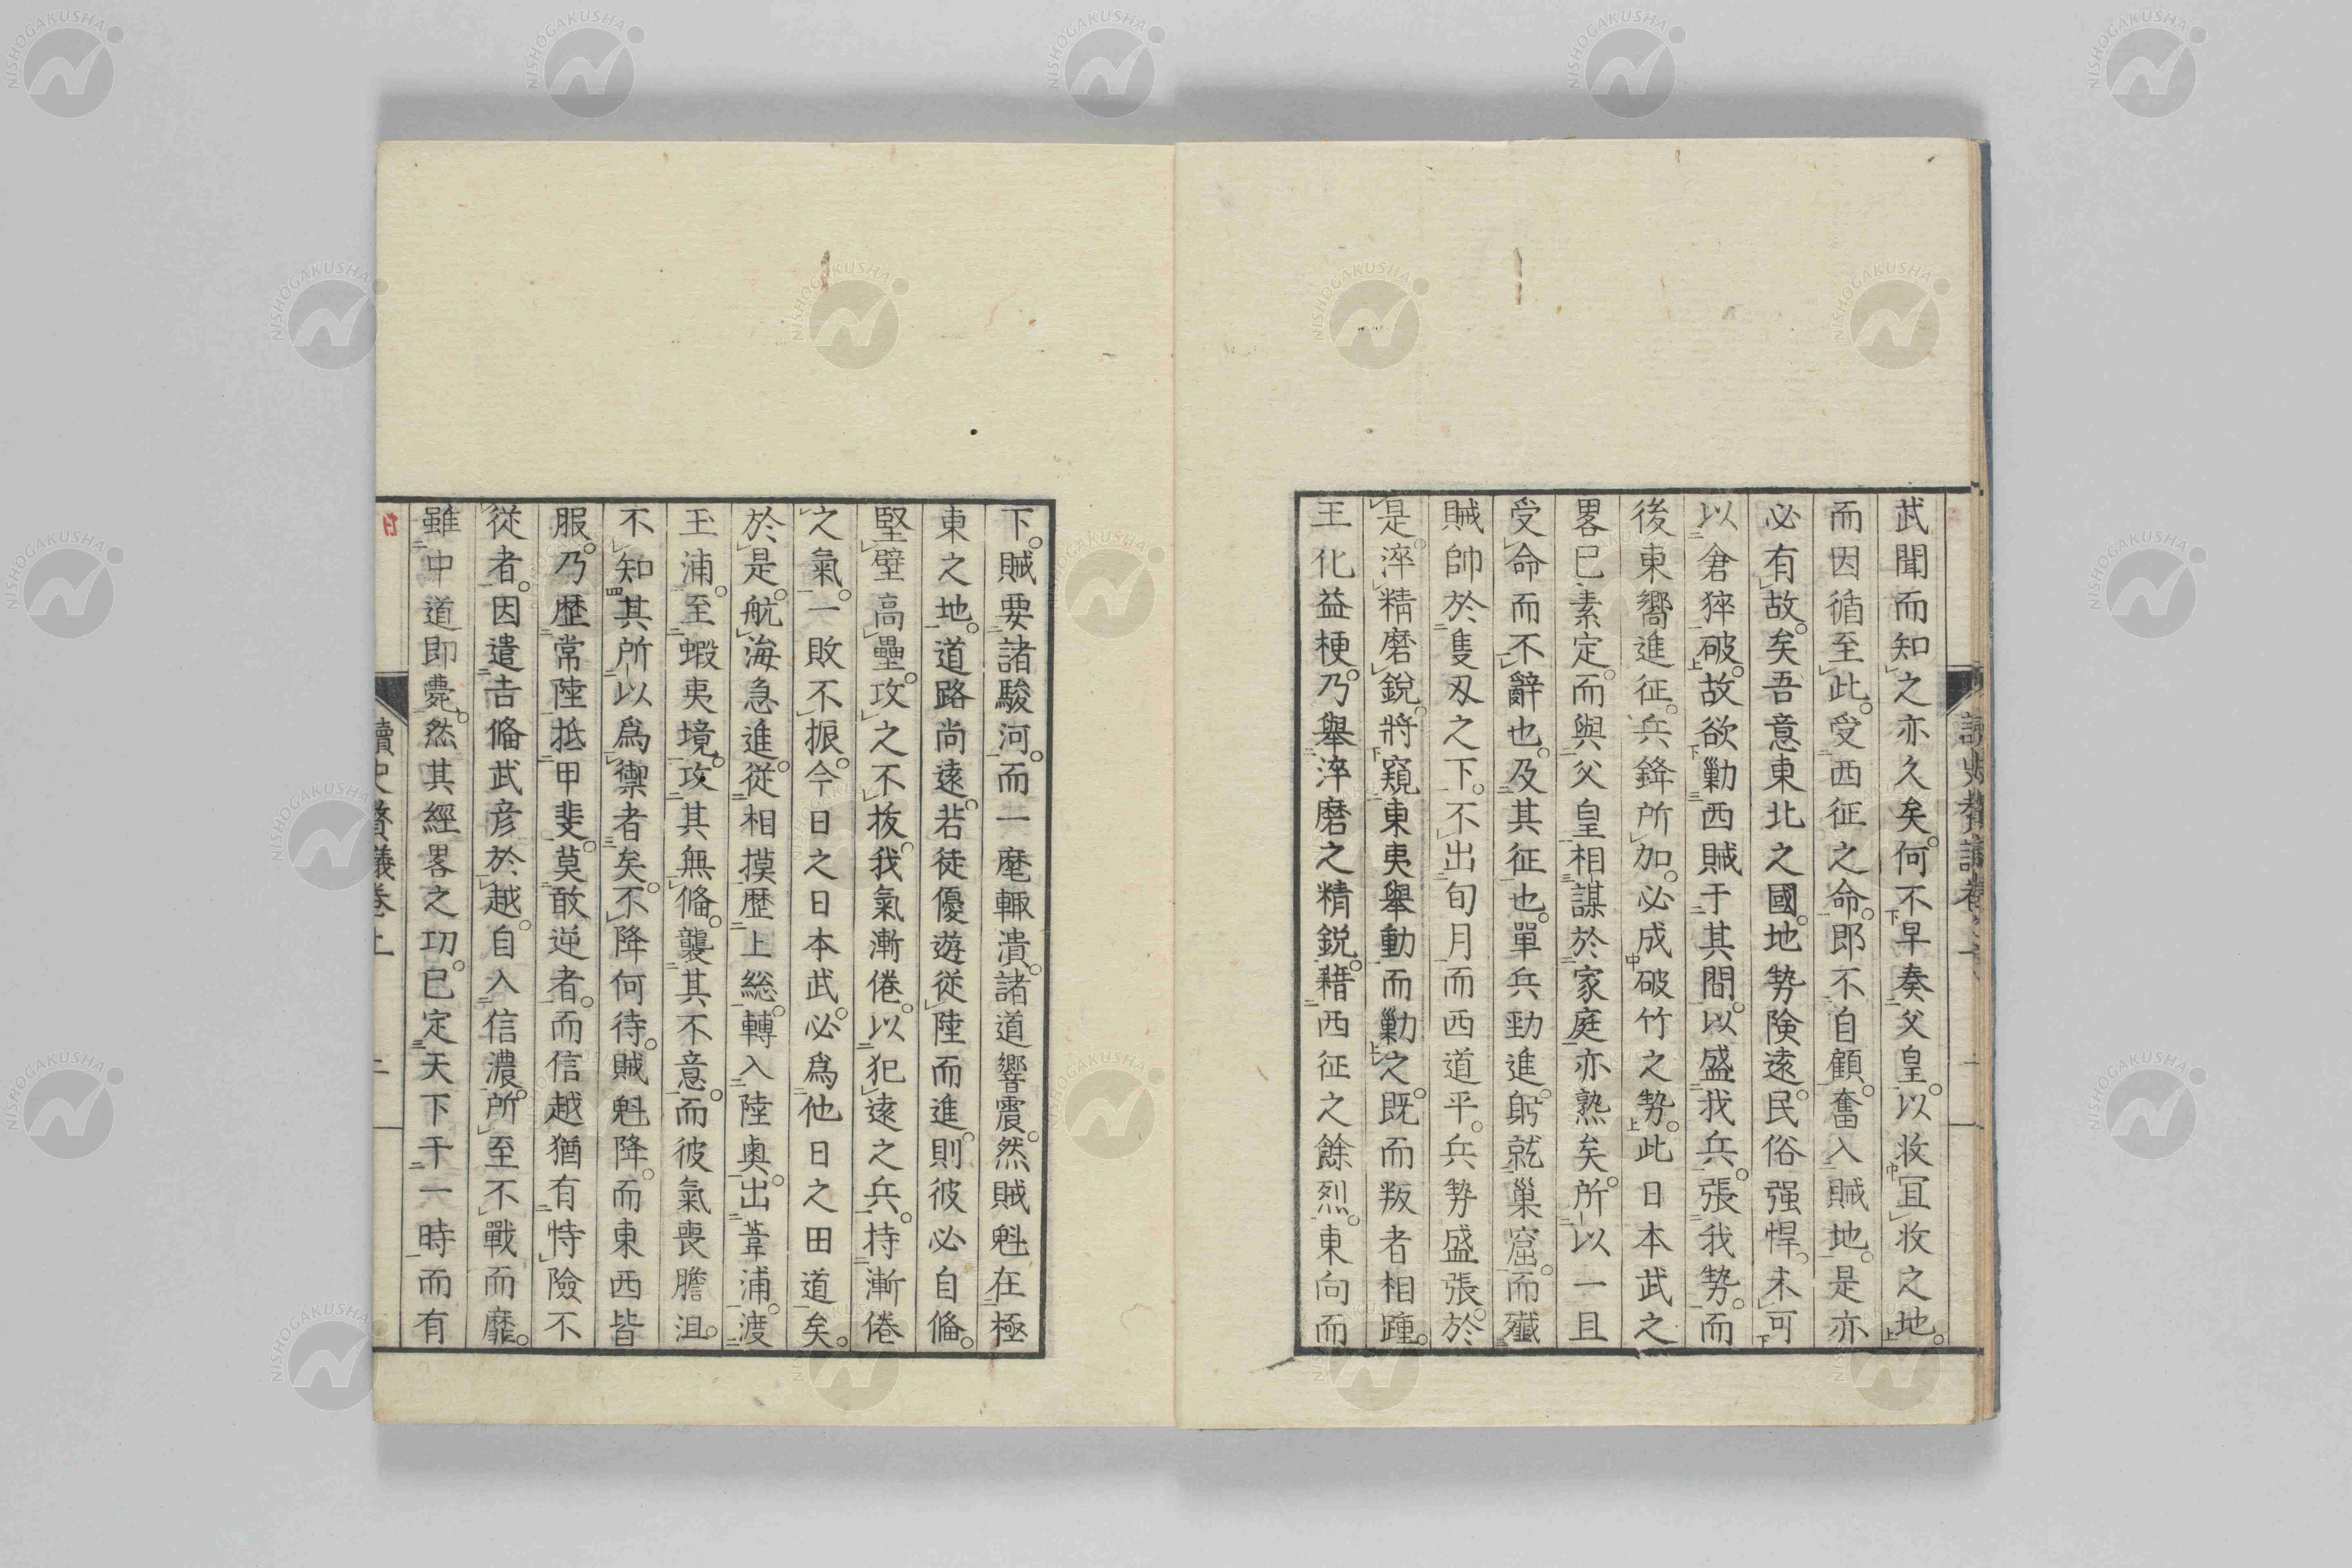 武聞而知之亦久矣。何不早奏父皇。以收宜收之地。
而因循至此。受西征之命。即不自顧。奮入賊地。是亦
必有故矣。吾意東北之國。地勢険遠。民俗强悍。未可
以倉猝破。故欲勦西賊于其間。以盛我兵。張我勢。而
後東嚮進征。兵鋒所加。必成破竹之勢。此日本武之
畧已素定。而與父皇相謀於家庭亦熟矣。所以一旦
受命而不辭也。及其征也。單兵勁進。躬就巢窟。而殲
賊帥於隻刄之下。不出旬月而西道平。兵勢盛張。於
是淬精磨銳。將窺東夷舉動而勦之。既而叛者相踵。
王化益梗。乃舉淬磨之精鋭。藉西征之餘烈。東向而
下。賊要諸駿河。而一麾輙潰。諸道響震。然賊魁在極
東之地。道路尚遠。若徒優遊從陸而進。則彼必自俻。
堅壁高壘。攻之不拔。我氣漸倦。以犯遠之兵。持漸倦
之氣。一敗不振。今日之日本武。必爲他日之田道矣。
於是。航海急進。從相摸歴上総。轉入陸奥。出葦浦。渡
玉浦。至蝦夷境。攻其無俻。襲其不意。而彼氣喪膽沮。
不知其所以爲禦者矣。不降何待。賊魁降。而東西皆
服。乃歴常陸抵甲斐。莫敢逆者。而信越猶有恃險不
從者。因遣吉俻武彦於越。自入信濃。所至不戰而靡。
雖中道即薨。然其經畧之功。已定天下于一時而有
讀史贅議卷上
二